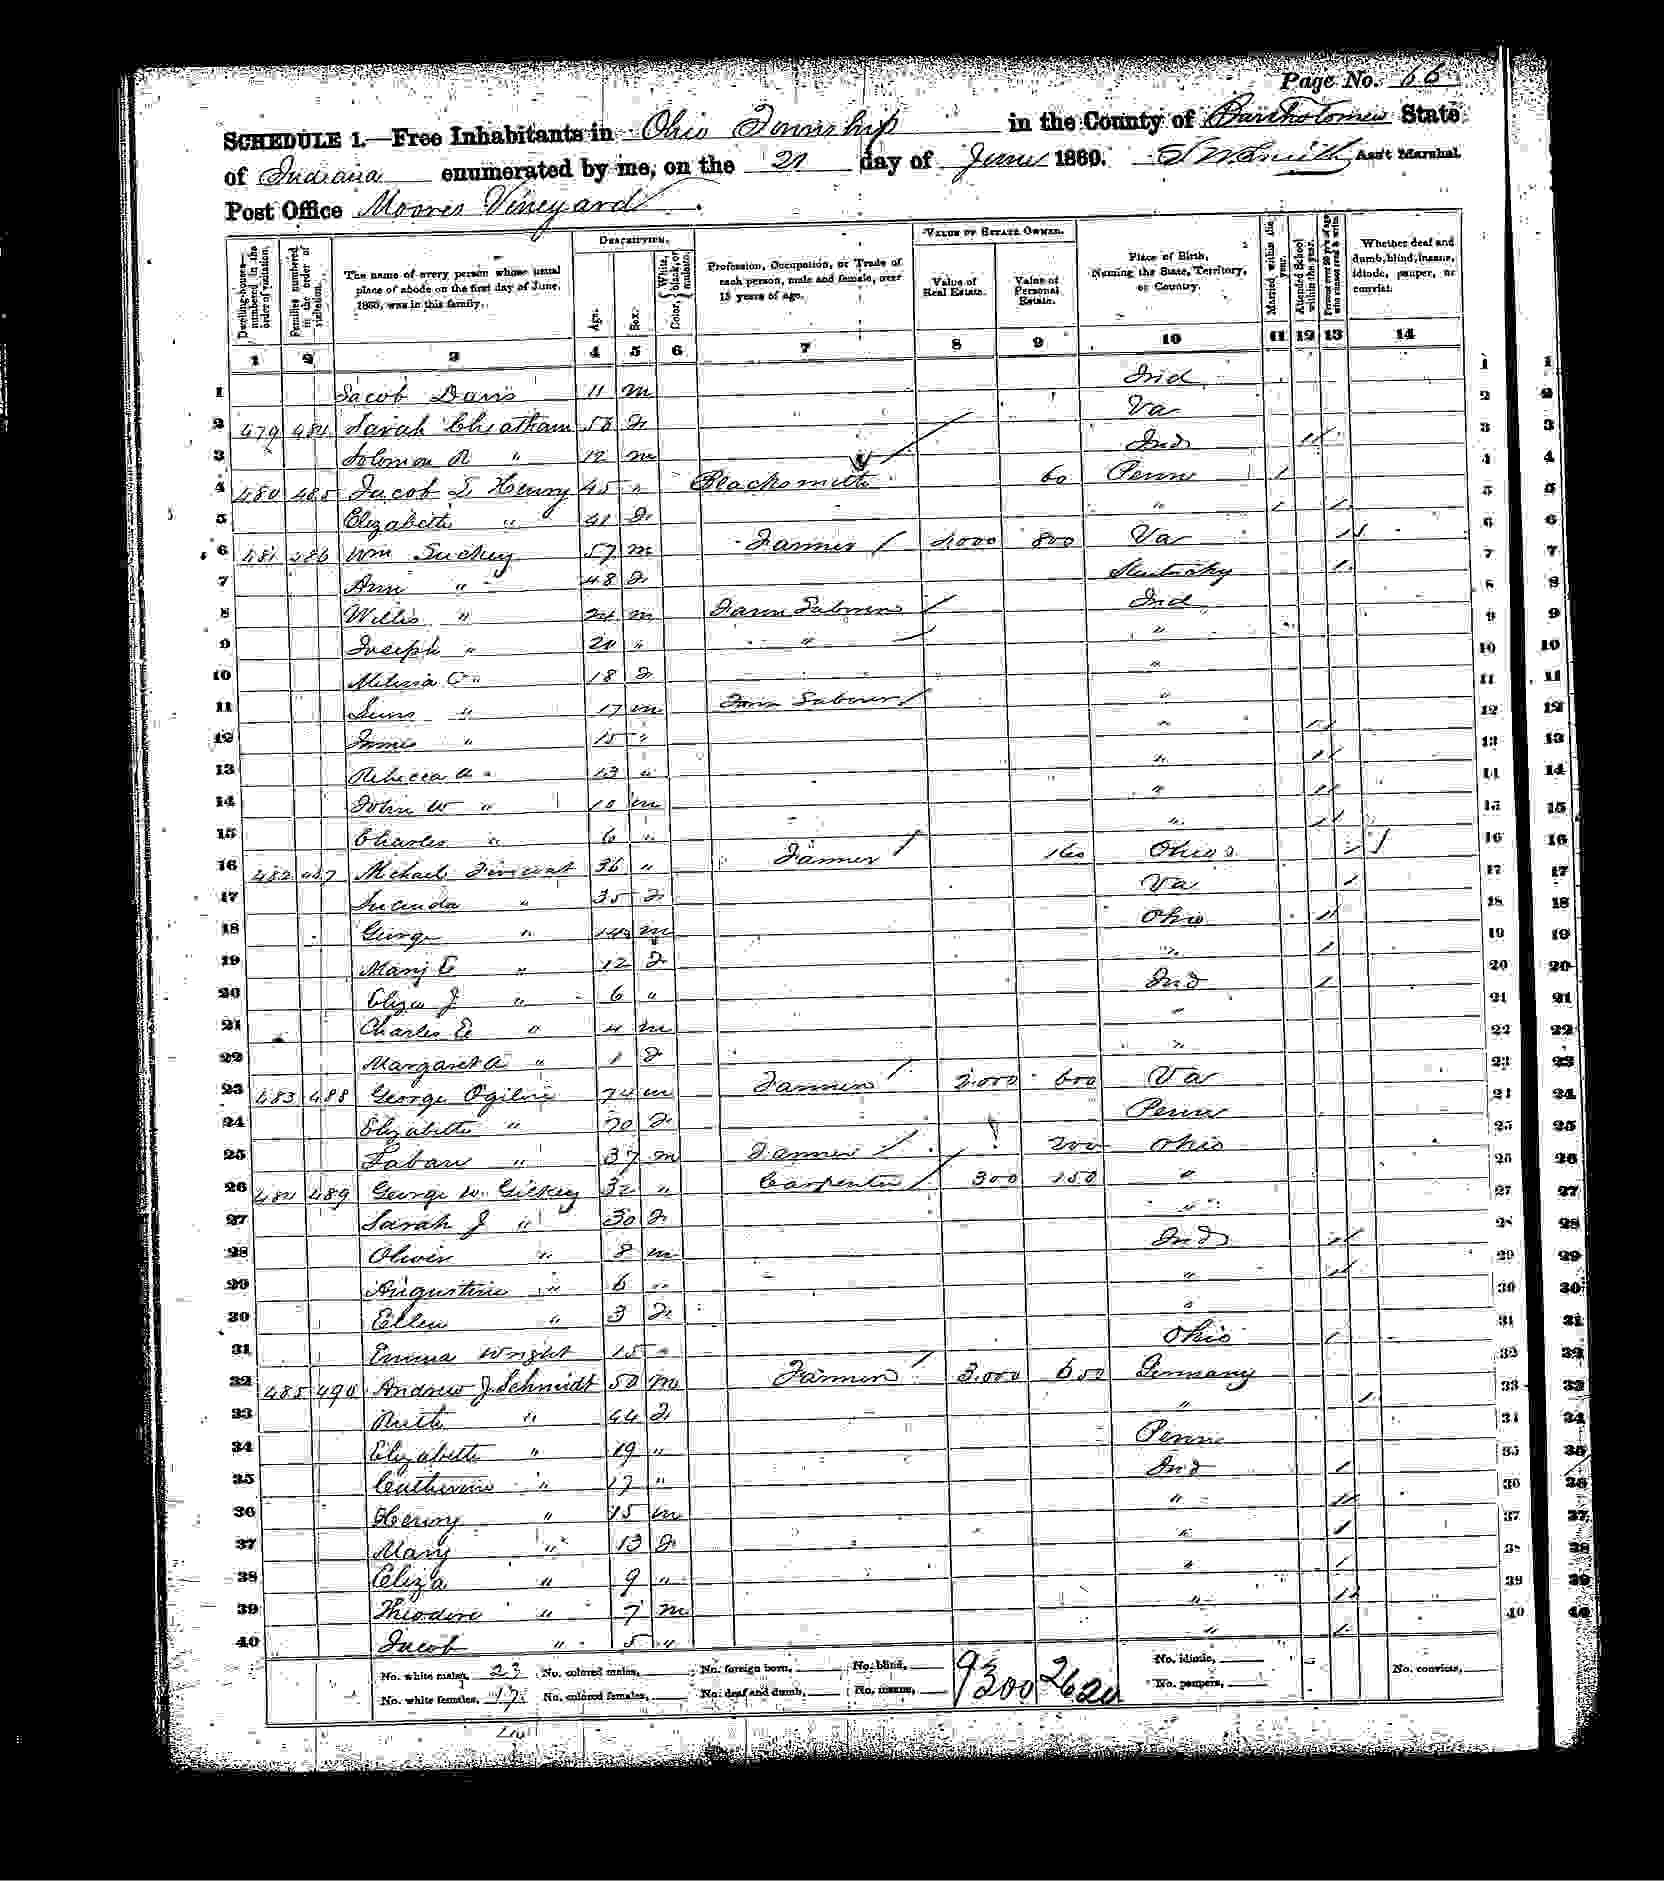 Page No. 66
SCHEDULE 1.—Free Inhabitants in Ohio Township in the County of Bartholomew State
of Indiana enumerated by me, on the 21 day of June 1860. Ass't Marshal.
Post Office Moores Vineyard
DESCRIPTION. VALUE OF ESTATE OWNED.
Dwelling-houses—numbered in the order of visitation.
Families numbered in the order of visitation.
The name of every person whose usual place of abode on the first day of June, 1860, was in this family.
Age.
Sex.
Color, { White, black, or mulatto.
Profession, Occupation, or Trade of each person, male and female, over 15 years of age.
Value of Real Estate.
Value of Personal Estate.
Place of Birth, Naming the State, Territory, or Country.
Married within the year.
Attended School within the year.
Persons over 20 y'rs of age who cannot read & write
Whether deaf and dumb, blind, insane, idiotic, pauper, or convict.
1 2 3 4 5 6 7 8 9 10 11 12 13 14
1 Jacob Davis 11 m Ind 1
2 479 484 Sarah Cheatham 58 f Va 2
3 Solomon R " 12 m Ind 1 3
4 480 485 Jacob Henry 45 " Blacksmith 60 Penn 1 4
5 Elizabeth " 41 f " 1 1 5
6 481 486 Wm 57 m Farmer 800 Va 1 6
7 Ann " 48 f Kentucky 1 7
8 Willis " 24 m Farm Laborer Ind 8
9 Joseph " 20 " " " 9
10 " 18 f " 10
11 " 17 m Farm Laborer " 11
12 James " 15 " " 1 12
13 Rebecca A " 13 " " 1 13
14 John W " 10 m " 1 14
15 Charles " 6 " " 1 15
16 482 487 Michael 36 " Farmer 160 Ohio 1 16
17 Lucinda " 35 f Va 1 17
18 George " 14 m Ohio 1 18
19 Mary E " 12 f " 1 19
20 Eliza J " 6 " Ind 1 20
21 Charles E " 4 m " 21
22 Margaret A " 1 f " 22
23 483 488 George Ogilvie 74 m Farmer 2.000 600 Va 23
24 Elizabeth " 70 f Penn 24
25 Laban " 37 m Farmer 200 Ohio 25
26 484 489 George W. Gickey 32 " Carpenter 300 150 " 26
27 Sarah J " 30 f " 27
28 Oliver " 8 m Ind 1 28
29 Augustine " 6 " " 1 29
30 Ellen " 3 f " 30
31 Emma Wright 15 " Ohio 1 31
32 485 490 Andrew J. Schmidt 50 m Farmer 3.000 600 Germany 32
33 Ruth " 44 f " 1 33
34 Elizabeth " 19 " Penn 34
35 Catherine " 17 " Ind 1 35
36 Henry " 15 m " 1 36
37 Mary " 13 f " 1 37
38 Eliza " 9 " " 1 38
39 Theodore " 7 m " 1 39
40 Jacob " 5 " " 1 40
No. white males, 23 No. colored males, No. foreign born, No. blind, 9300 2620 No. idiotic, No. convicts,
No. white females, 17 No. colored females, No. deaf and dumb, No. insane, No. paupers,